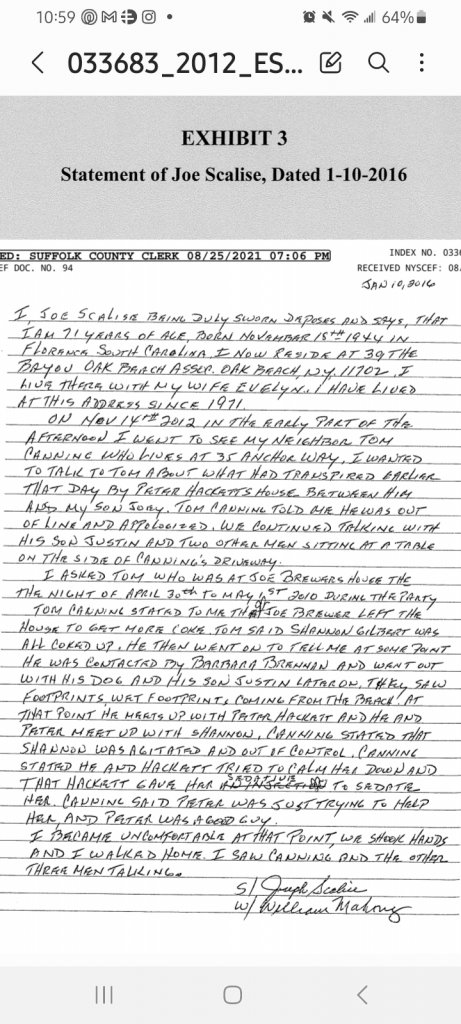 10:59
64%
033683_2012_ES...
EXHIBIT 3
Statement of Joe Scalise, Dated 1-10-2016
ED: SUFFOLK COUNTY CLERK 08/25/2021 07:06 PM
INDEX NO. 0336
EF DOC. NO. 94
RECEIVED NYSCEF: 08
JAN 10, 2016
I, JOE SCALISE BEING DULY SWORN DEPOSES AND SAYS, THAT
I AM 71 YEARS OF AGE, BORN NOVEMBER 15TH 1944 IN
FLORENCE SOUTH CAROLINA. I NOW RESIDE AT 39 THE
BAYOU OAK BEACH ASSER. OAK BEACH, NY, 11702. I
LIVE THERE WITH MY WIFE EVELYN. I HAVE LIVED
AT THIS ADDRESS SINCE 1971.
ON NOV 14TH 2012 IN THE EARLY PART OF THE
AFTERNOON I WENT TO SEE MY NEIGHBOR TOM
CANNING WHO LIVES AT 35 ANCHOR WAY. I WANTED
TO TALK TO TOM ABOUT WHAT HAD TRANSPIRED EARLIER
THAT DAY BY PETER HACKETTS HOUSE BETWEEN HIM
AND MY SON JOEY. TOM CANNING TOLD ME HE WAS OUT
OF LINE AND APPOLOGIZED. WE CONTINUED TALKING WITH
HIS SON JUSTIN AND TWO OTHER MEN SITTING AT A TABLE
ON THE SIDE OF CANNING'S DRIVEWAY.
I ASKED TOM WHO WAS AT JOE BREWERS HOUSE THE
THE NIGHT OF APRIL 30th TO MAY 1ST 2010 DURING THE PARTY
TOM CANNING STATED TO ME THAT JOE BREWER LEFT THE
HOUSE TO GET MORE COKE. TOM SAID SHANNON GILBERT WAS
ALL COKED UP. HE THEN WENT ON TO TELL ME AT SOME POINT
HE WAS CONTACTED BY BARBARA BRENNAN AND WENT OUT
WITH HIS DOG AND HIS SON JUSTIN LATER ON. THEY SAW
FOOTPRINTS, WET FOOTPRINTS, COMING FROM THE BEACH. AT
THAT POINT HE MEETS UP WITH PETER HACKETT AND HE AND
PETER MEET UP WITH SHANNON. CANNING STATED THAT
SHANNON WAS AGITATED AND OUT OF CONTROL. CANNING
STATED HE AND HACKETT TRIED TO CALM HER DOWN AND
THAT HACKETT GAVE HER SEDATIVE AN INJECTION TO SEDATE
HER. CANNING SAID PETER WAS JUST TRYING TO HELP
HER, AND PETER WAS A GOOD GUY.
I BECAME UNCOMFORTABLE AT THAT POINT, WE SHOOK HANDS
AND I WALKED HOME. I SAW CANNING AND THE OTHER
THREE MEN TALKING.
S/ Joseph Scalise
W/ William Mahony